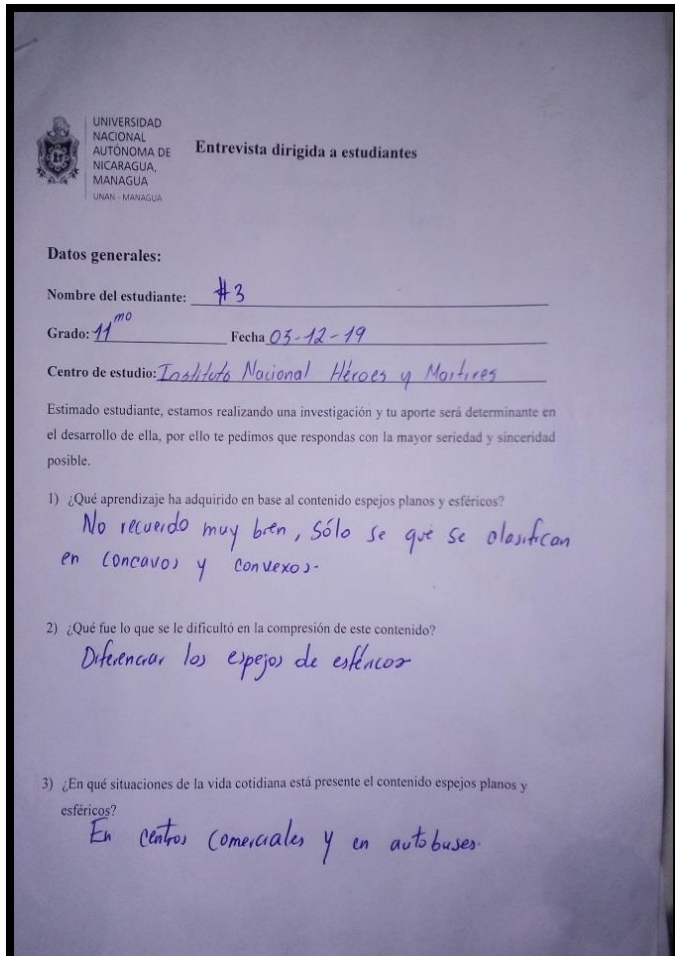 UNIVERSIDAD
NACIONAL
AUTÓNOMA DE
NICARAGUA,
MANAGUA
UNAN - MANAGUA
Entrevista dirigida a estudiantes
Datos generales:
Nombre del estudiante: #3
Grado: 11mo Fecha 03-12-19
Centro de estudio: Instituto Nacional Héroes y Martires
Estimado estudiante, estamos realizando una investigación y tu aporte será determinante en
el desarrollo de ella, por ello te pedimos que respondas con la mayor seriedad y sinceridad
posible.
1) ¿Qué aprendizaje ha adquirido en base al contenido espejos planos y esféricos?
No recuerdo muy bien, Sólo se que se clasifican
en concavos y convexos.
2) ¿Qué fue lo que se le dificultó en la compresión de este contenido?
Diferenciar los espejos de esféricos
3) ¿En qué situaciones de la vida cotidiana está presente el contenido espejos planos y
esféricos?
En centros comerciales y en autobuses.